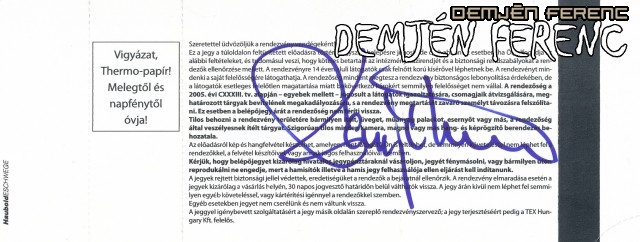 DEMJÉN FERENC
DEMJÉN FERENC
Vigyázat,
Thermo-papír!
Melegtől és
napfénytől
óvja!
HauboldESCHWEGE
Szeretettel üdvözöljük a rendezvény
Ez a jegy a túloldalon feltüntetett előadásra
alábbi feltételeket, és tudomásul veszi, hogy köte betartani az intézmény házirendjét és a biztonsági rendszabályokat a ren-
dezők ellenőrzése mellett. A rendezvényre 14 éven aluli látogatók csak felnőtt korú kísérővel léphetnek be. A rendezvényt min-
denki a saját felelősségére látogathatja. A rendezőség a rendezvény biztonságos lebonyolítása érdekében, de
a látogatók esetleges előtelen magatartása miatt semmilyen felelősséget nem vállal. A rendezőség a
2005. évi CXXXIII. tv. alapján – egyebek mellett – jogosult a látogatók igazoltatására, csomagjaik átvizsgálására, meg-
határozott tárgyak bevitelének megakadályozására, s a rendezvény megtartását zavaró személyt távozásra felszólíta-
ni. Ez esetben a belépőjegy árát a rendezőség nem téríti vissza.
Tilos behozni a rendezvény területére bármilyen italt, üveget, műanyag palackot, esernyőt vagy más, a rendezőség
által veszélyesnek ítélt tárgyat. Szigorúan tilos mindenfajta kamera, magnó vagy más hang- és képrögzítő berendezés be-
hozatala.
Az előadásról kép és hangfelvétel
rendezőkkel, a felvétel készítőjével vagy annak jogos felhasználóival szemben.
Kérjük, hogy belépőjegyet kizárólag hivatalos jegypénztáraknál vásároljon, jegyét fénymásolni, vagy bármilyen
reprodukálni ne engedje, mert a hamisítók illetve a hamis jegy felhasználója ellen eljárást kell indítanunk.
A jegyek rejtett biztonsági jellel védettek, eredetiségüket a rendezők a bejáratnál ellenőrzik. A rendezvény elmaradása esetén a
jegyek kizárólag a vásárlás helyén, 30 napos jogvesztő határidőn belül válthatók vissza. A jegy árán kívül nem léphet fel semmi-
lyen egyéb követeléssel, vagy kártérítési igénnyel a rendezőkkel szemben.
Egyéb esetekben jegyet nem cserélünk és nem váltunk vissza.
A jeggyel igénybevett szolgáltatásért a jegy másik oldalán szereplő rendezvényszervező; a jegy terjesztéséért pedig a TEX Hun-
gary Kft. felelős.